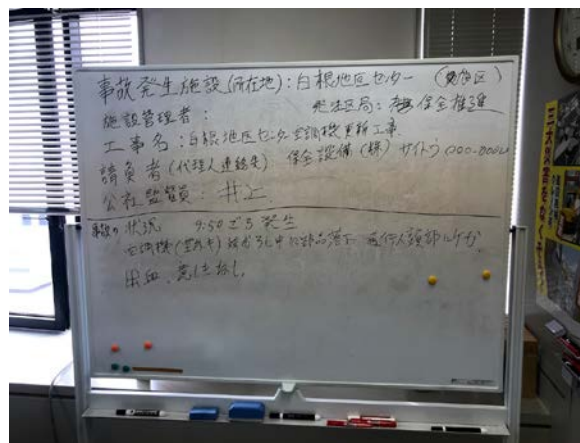 事故発生施設(所在地):白根地区センター (旭区)
施設管理者: 発注区局: 保全推進
工事名:白根地区センター空調機更新工事
請負者(代理人連絡先) 保全設備(株)サイトウ(000-0000)
公社監督員:井上
事故の状況 9:50ごろ発生
空調機(室外機)積み下ろし中に部品落下 通行人頭部にケガ、
出血、意識なし。